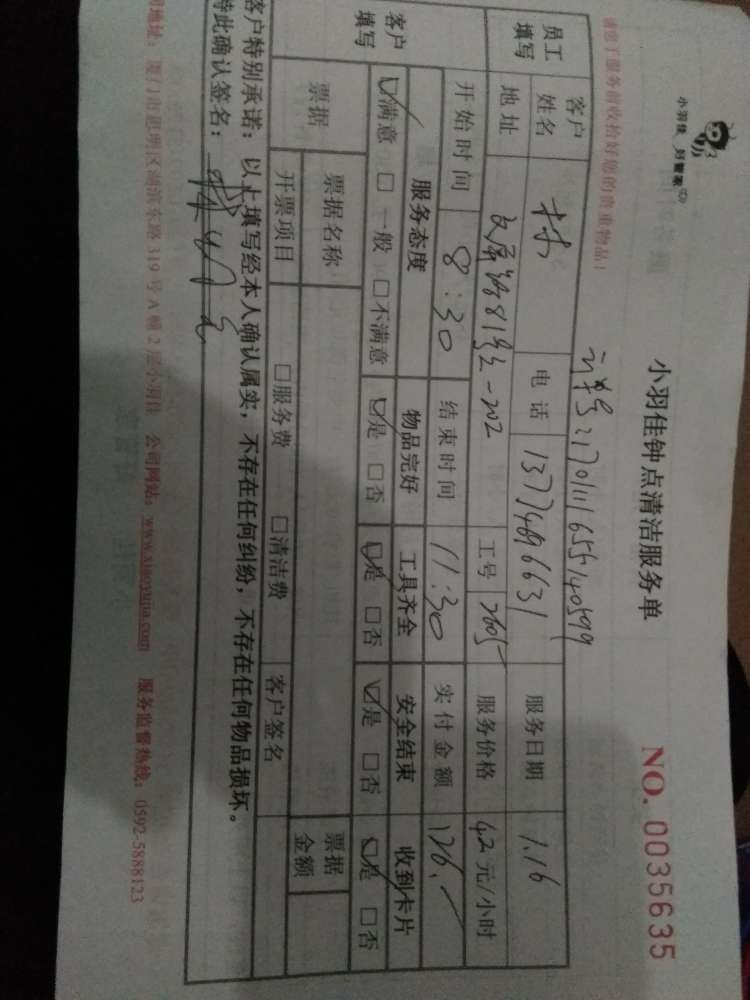 小羽佳 好管家
小羽佳钟点清洁服务单
NO. 0035635
请您于服务前收拾好您的贵重物品！
员工填写
客户姓名 林 电话 13774696631 服务日期 1.16
地址 文屏路81号之-202 工号 2605 服务价格 42元/小时
客户填写
开始时间 8:30 结束时间 11:30 实付金额 126.
服务态度 物品完好 工具齐全 安全结束 收到卡片
☑满意 □一般 □不满意 ☑是 □否 ☑是 □否 ☑是 □否 ☑是 □否
票据 票据名称 票据金额
开票项目 □服务费 □清洁费 客户签名
客户特别承诺：以上填写经本人确认属实，不存在任何纠纷，不存在任何物品损坏。
特此确认签名：
司地址：厦门市思明区湖滨东路319号A幢2层小羽佳 公司网站：www.xiaoyujia.com 服务监督热线：0592-5888123